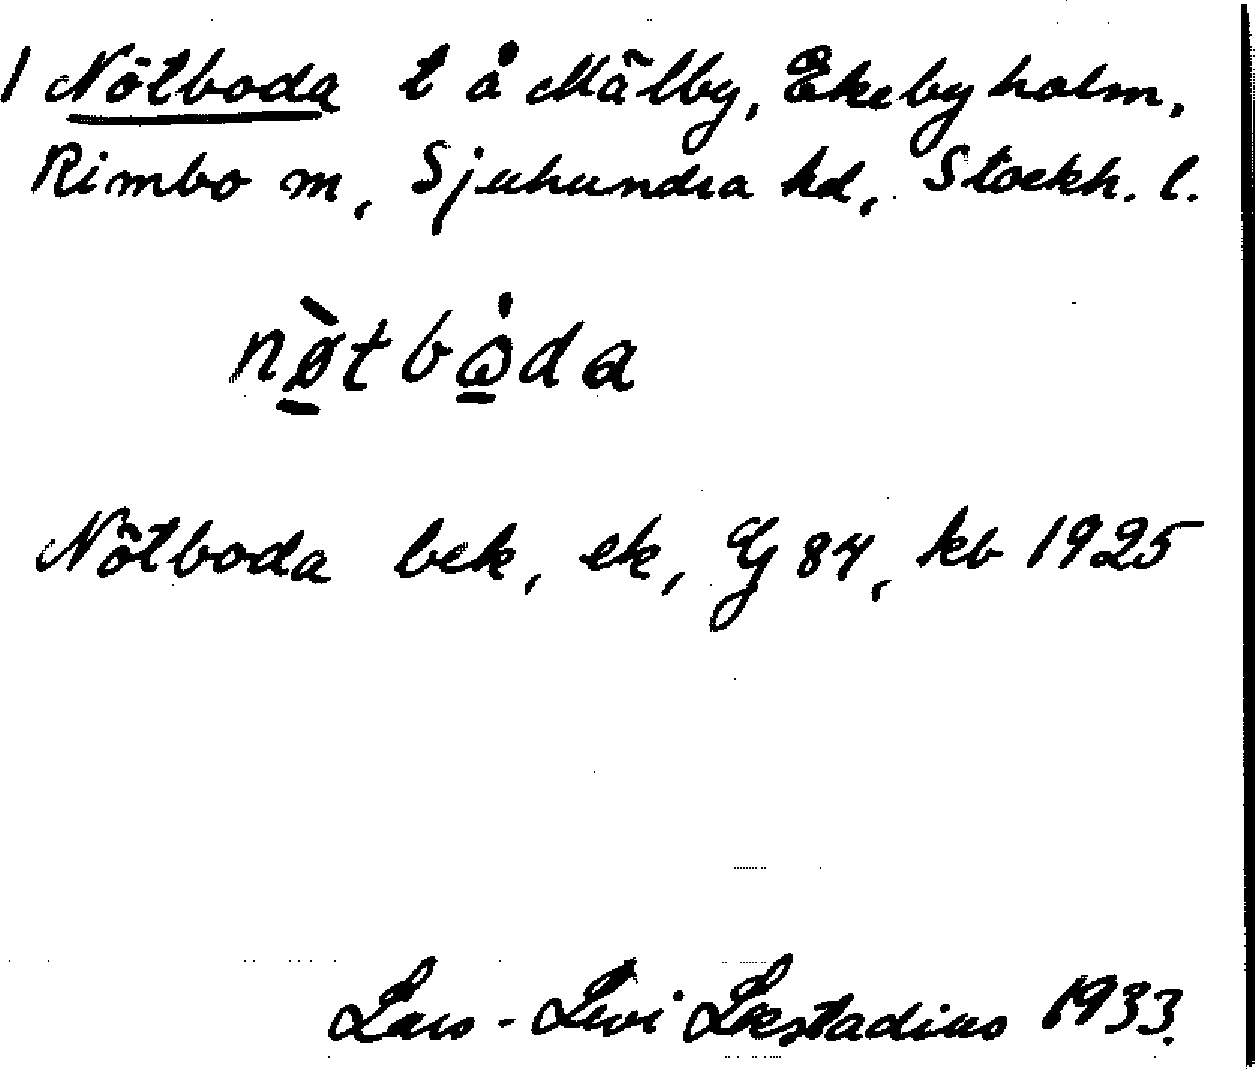 1 Nötboda t å Mälby, Ekebyholm,
Rimbo sn, Sjuhundra hd, Stockh. l.
nø̠̀tbω̠̇da
Nötboda bek, ek, G 84, kb 1925
Lars-Levi Læstadius 1933.